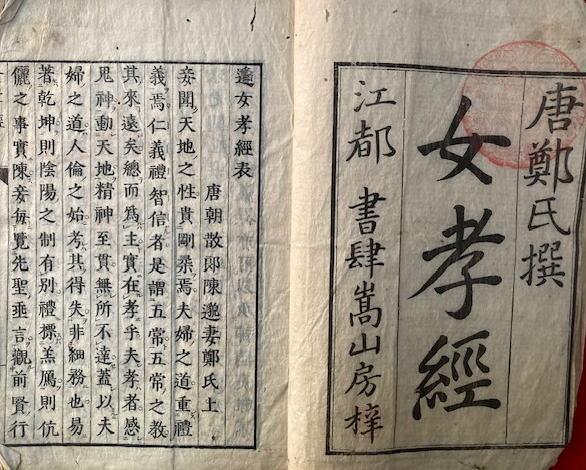 唐鄭氏撰
女孝經
江都 書肆嵩山房梓
進女孝經表
唐朝散郎陳邈妻鄭氏上
妾聞天地之性貴剛柔焉夫婦之道重禮
義焉仁義禮智信者是謂五常五常之教
其來遠矣總而爲主實在孝乎夫孝者感
鬼神動天地精神至貫無所不達蓋以夫
婦之道人倫之始考其得失非細務也易
著乾坤則陰陽之制有別禮標羔鴈則伉
儷之事實陳妾每覽先聖垂言觀前賢行